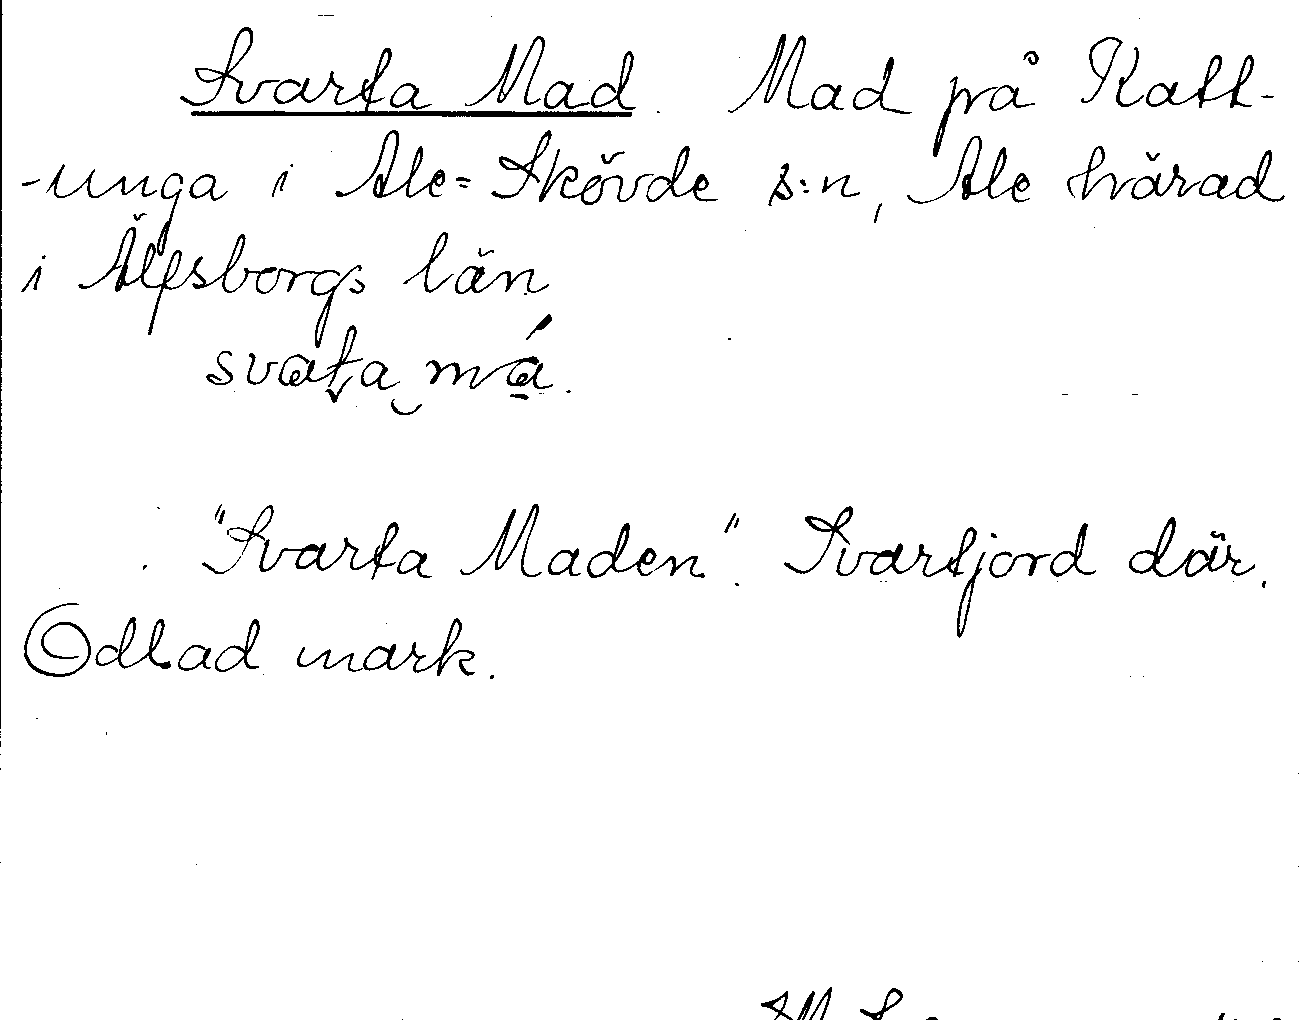 Svarta Mad. Mad på Katt-
-unga i Ale-Skövde s:n, Ale härad
i Älfsborgs län
svata má.
"Svarta Maden". Svartjord där.
Odlad mark.